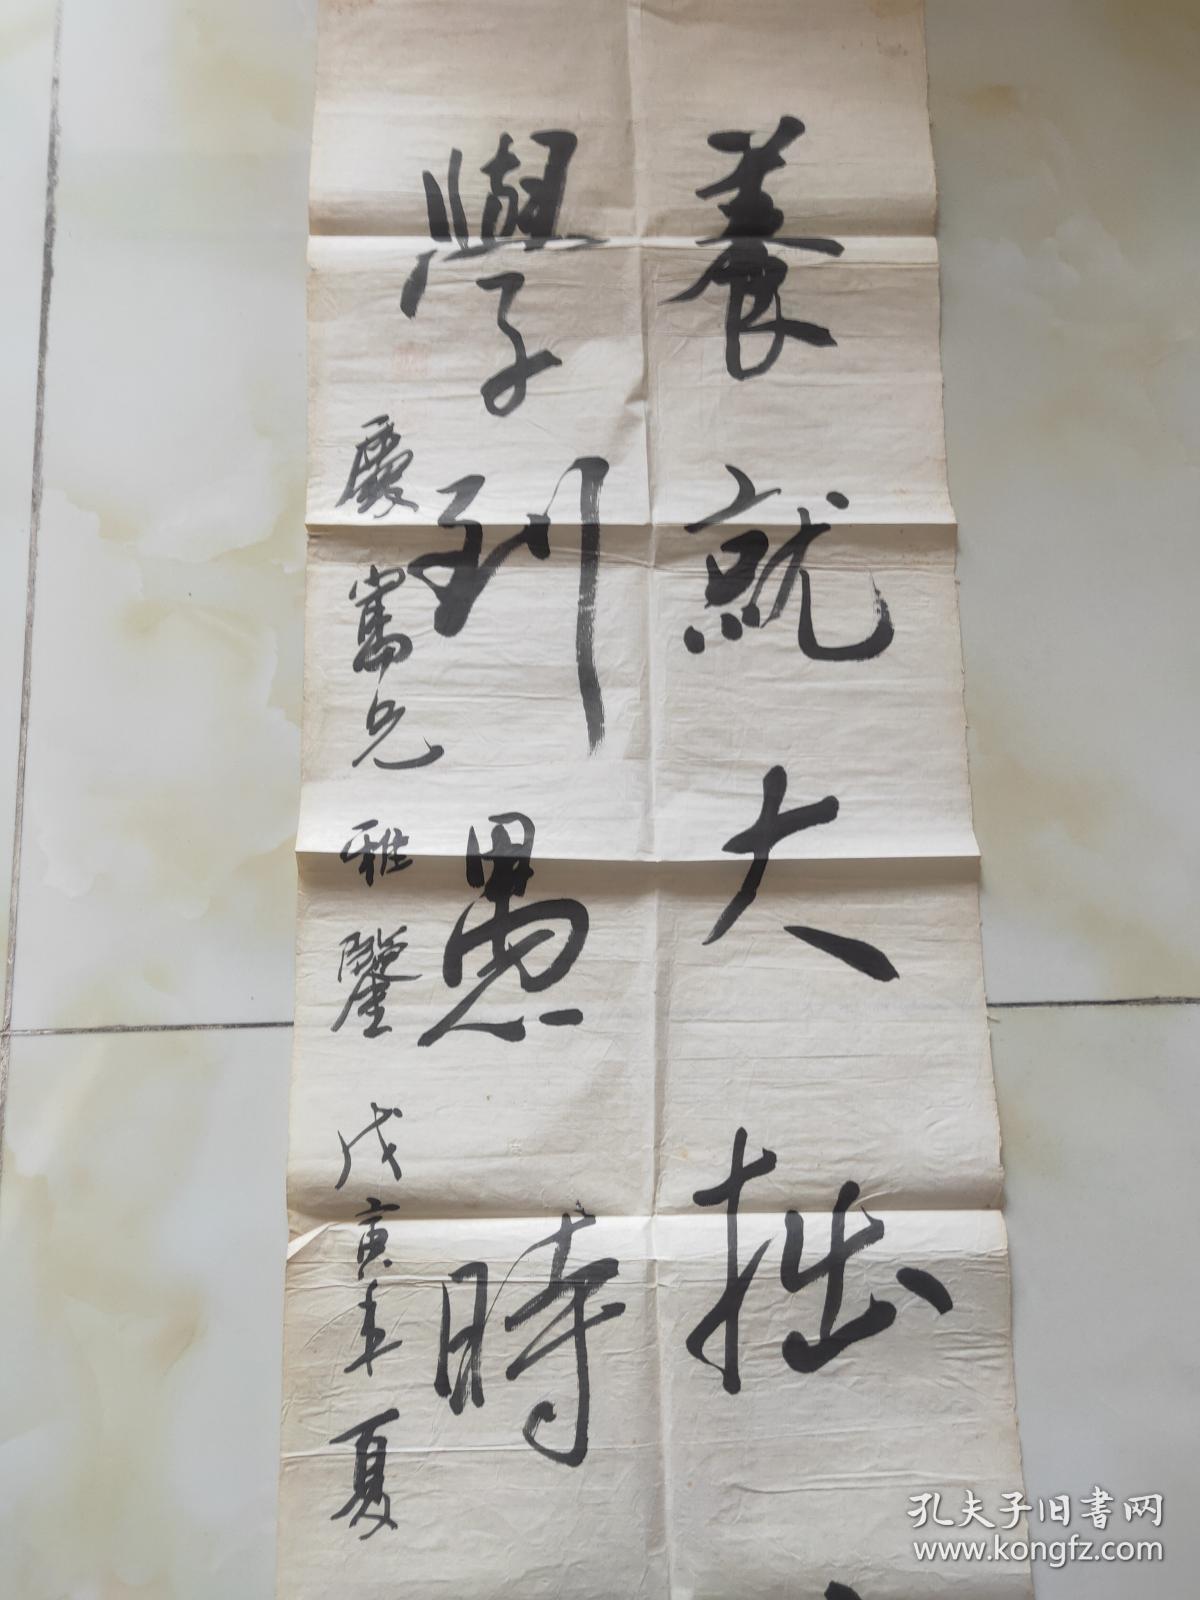 養就大拙
學到愚時
慶寓兄雅鑒 戊寅年夏
孔夫子旧书网
www.kongfz.com